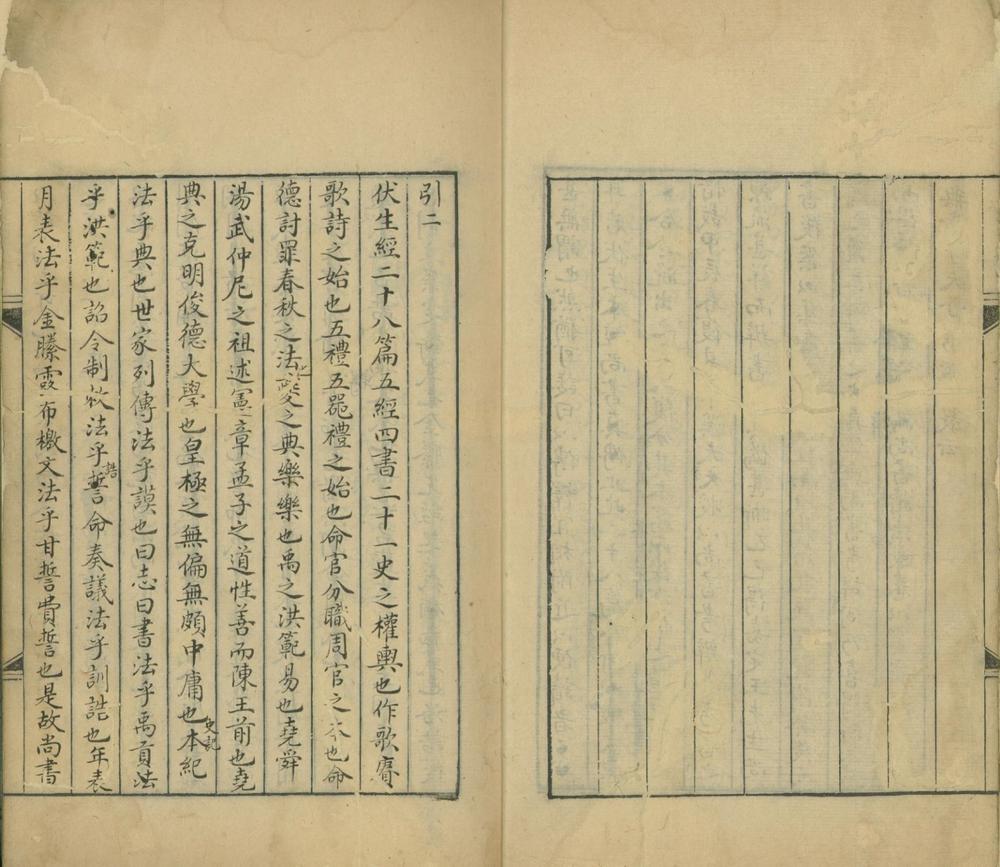 引二
伏生經二十八篇五經四書二十一史之權輿也作歌賡
歌詩之始也五禮五器禮之始也命官分職周官之本也命
德討罪春秋之法也夔之典樂樂也禹之洪範易也堯舜
湯武仲尼之祖述憲章孟子之道性善而陳王前也堯
典之克明俊德大學也皇極之無偏無頗中庸也史記本紀
法乎典也世家列傳法乎謨也曰志曰書法乎禹貢法
乎洪範也詔令制敕法乎誓誥命奏議法乎訓誥也年表
月表法乎金縢露布檄文法乎甘誓費誓也是故尚書